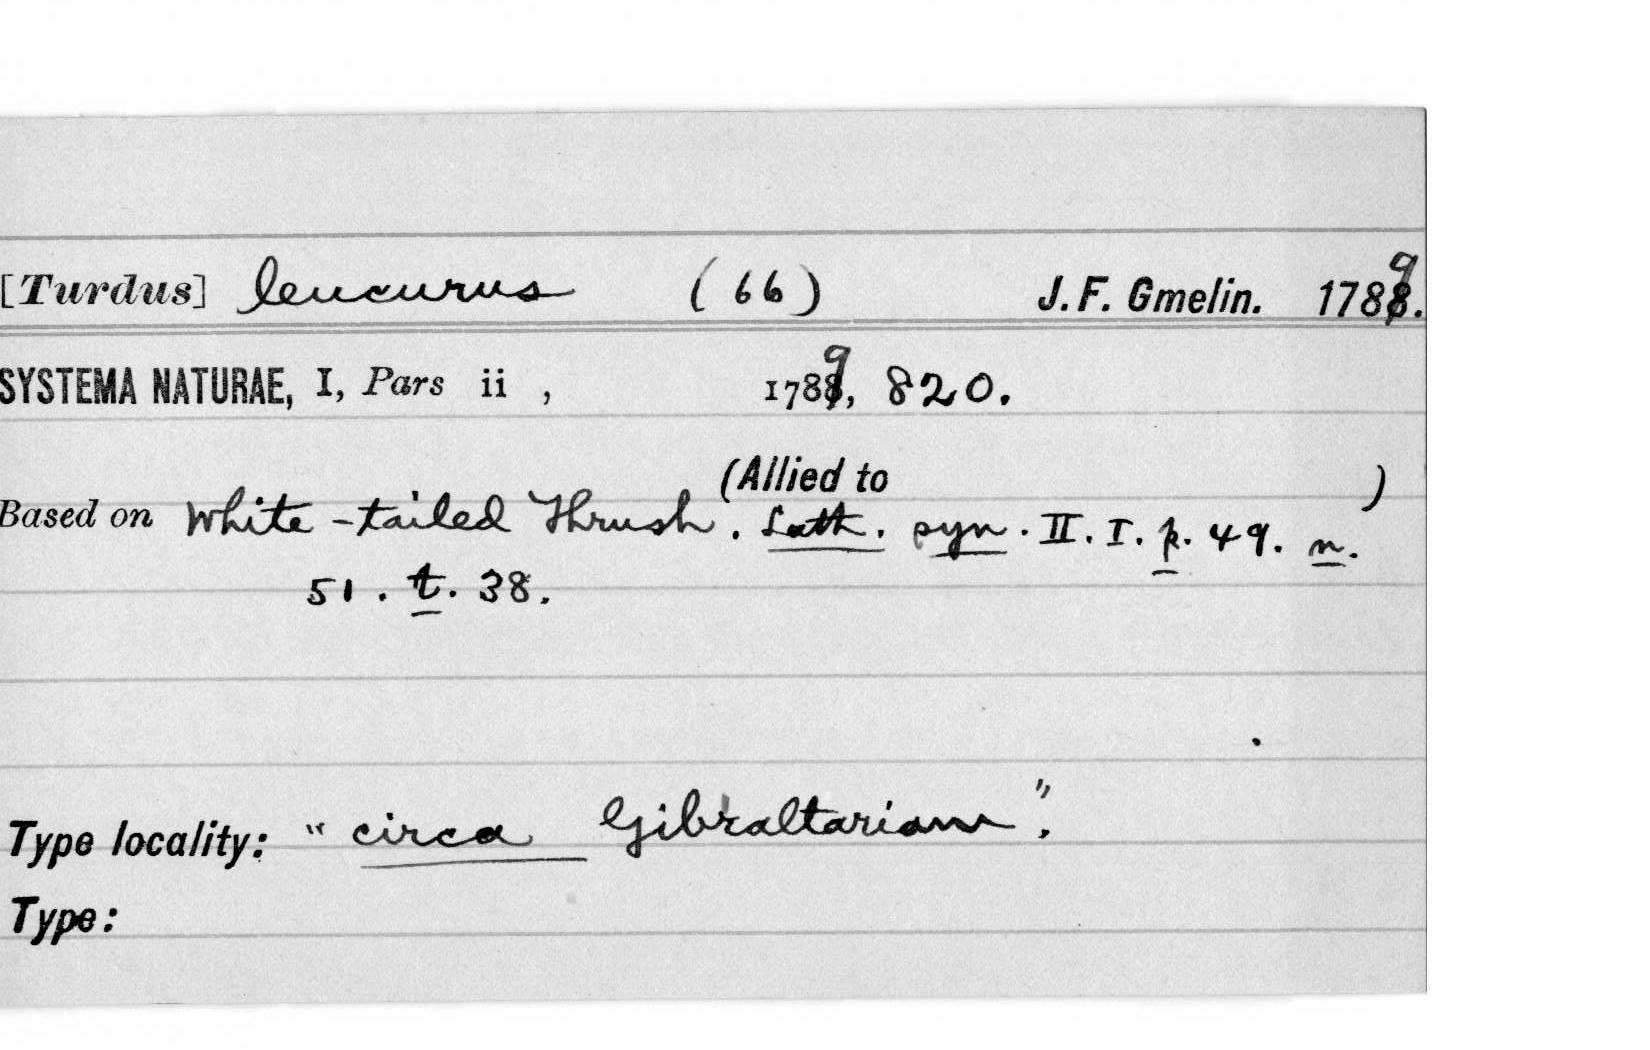 [Turdus] leucurus (66) J. F. Gmelin. 1789.
SYSTEMA NATURAE, I, Pars ii , 1789, 820.
(Allied to )
Based on White-tailed Thrush. Lath. syn. II. I. p. 49. n.
51. t. 38.
Type locality: "circa Gibraltariam".
Type: